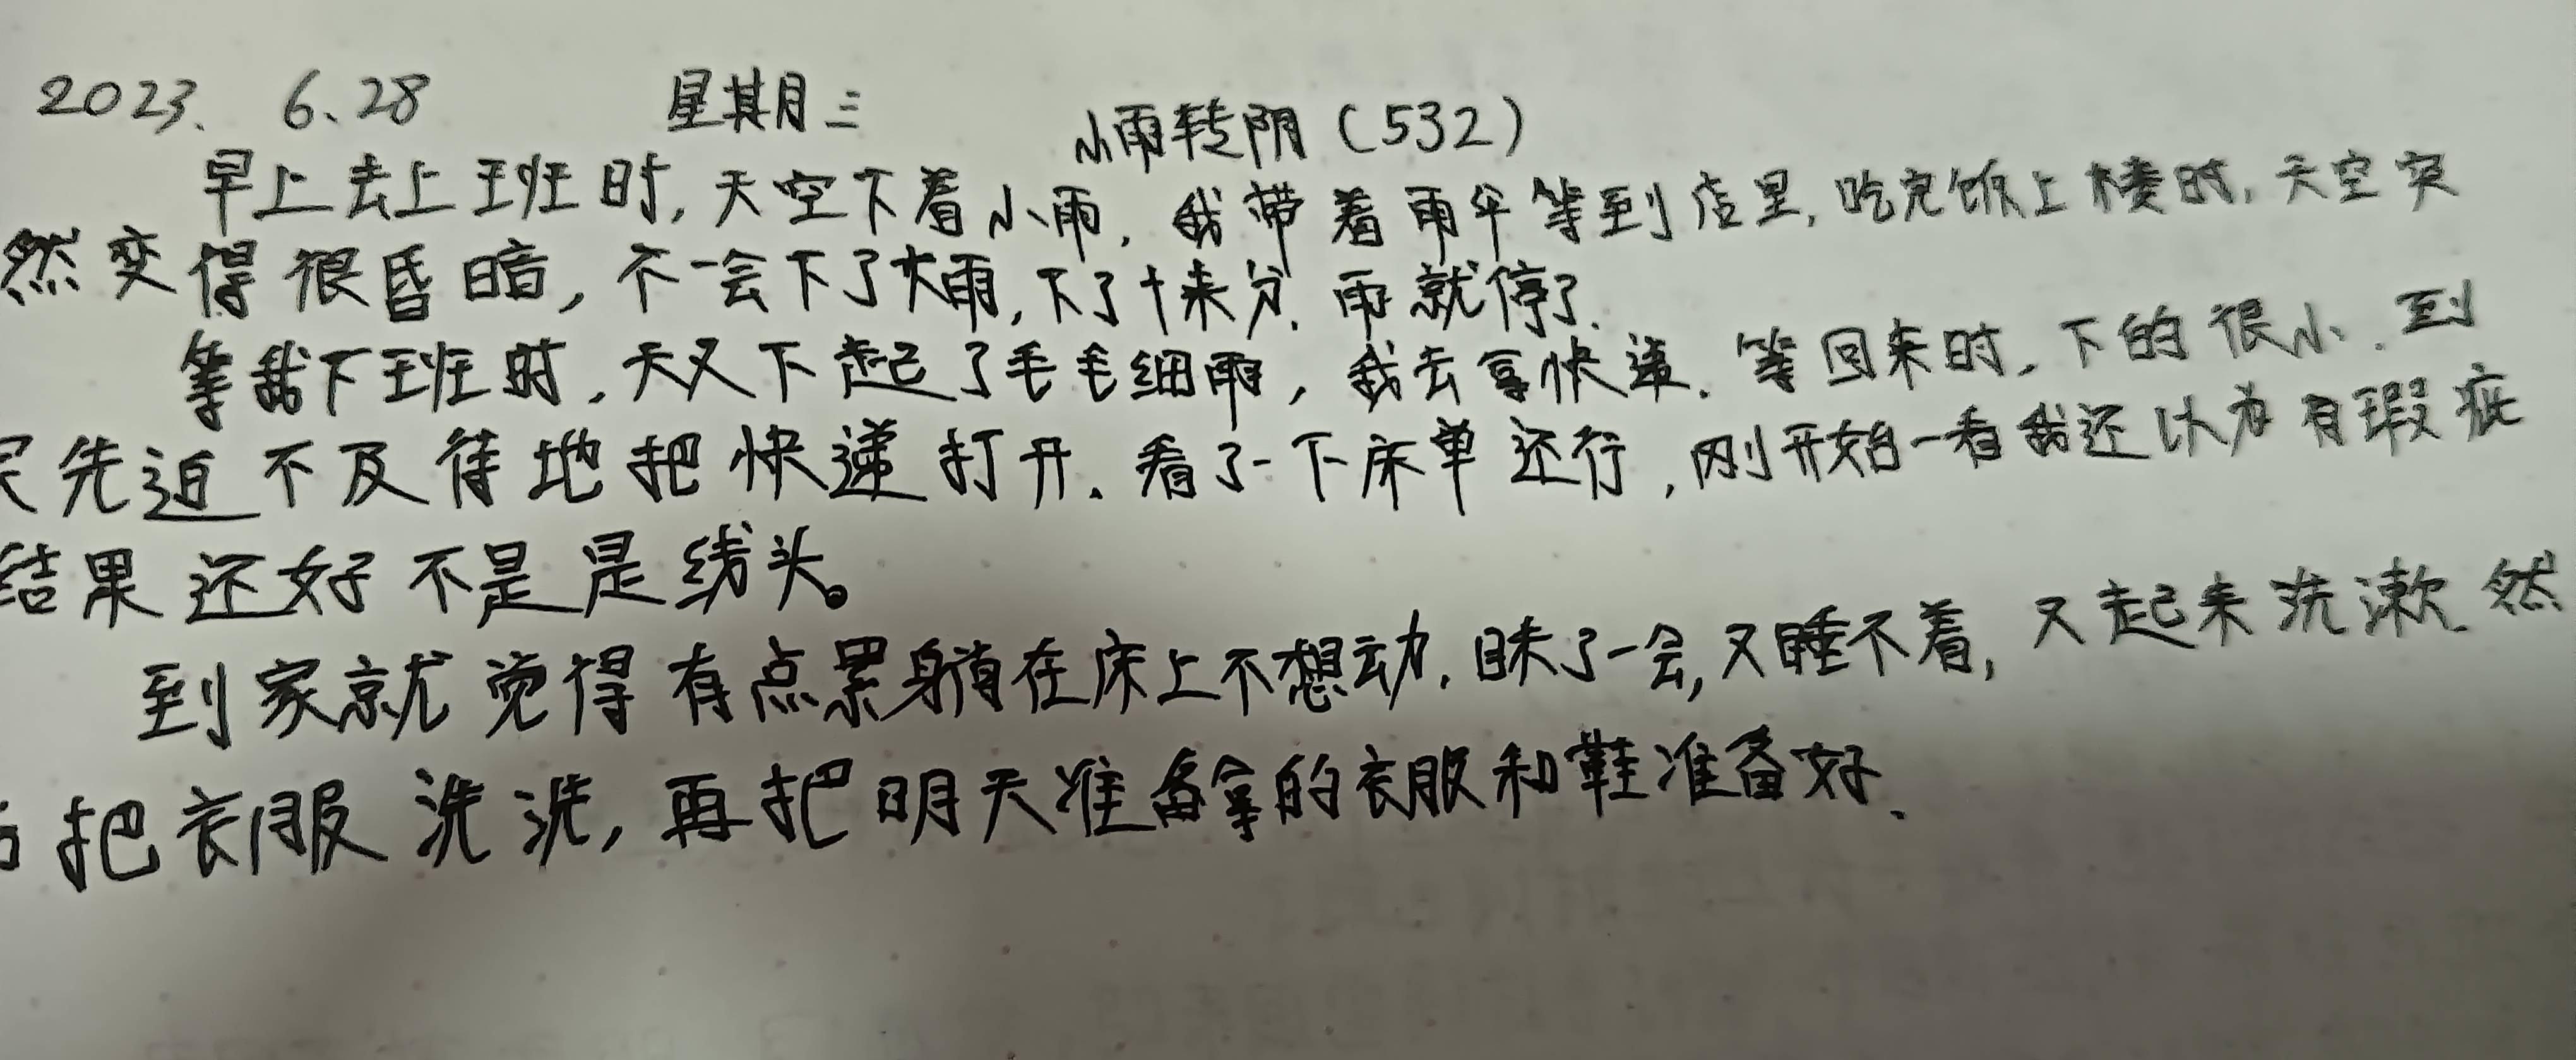 2023、6.28 星期三 小雨转阴（532）
早上去上班时，天空下着小雨，我带着雨伞等到店里，吃完饭上楼时，天空突
然变得很昏暗，不一会下了大雨，下了十来分、雨就停了、
等我下班时，天又下起了毛毛细雨，我去拿快递、等回来时，下的很小、到
家先迫不及待地把快递打开、看了一下床单还行，刚开始一看我还以为有瑕疵
结果还好不是是线头。
到家就觉得有点累躺在床上不想动，眯了一会，又睡不着，又起来洗漱、然
后把衣服洗洗，再把明天准备拿的衣服和鞋准备好、